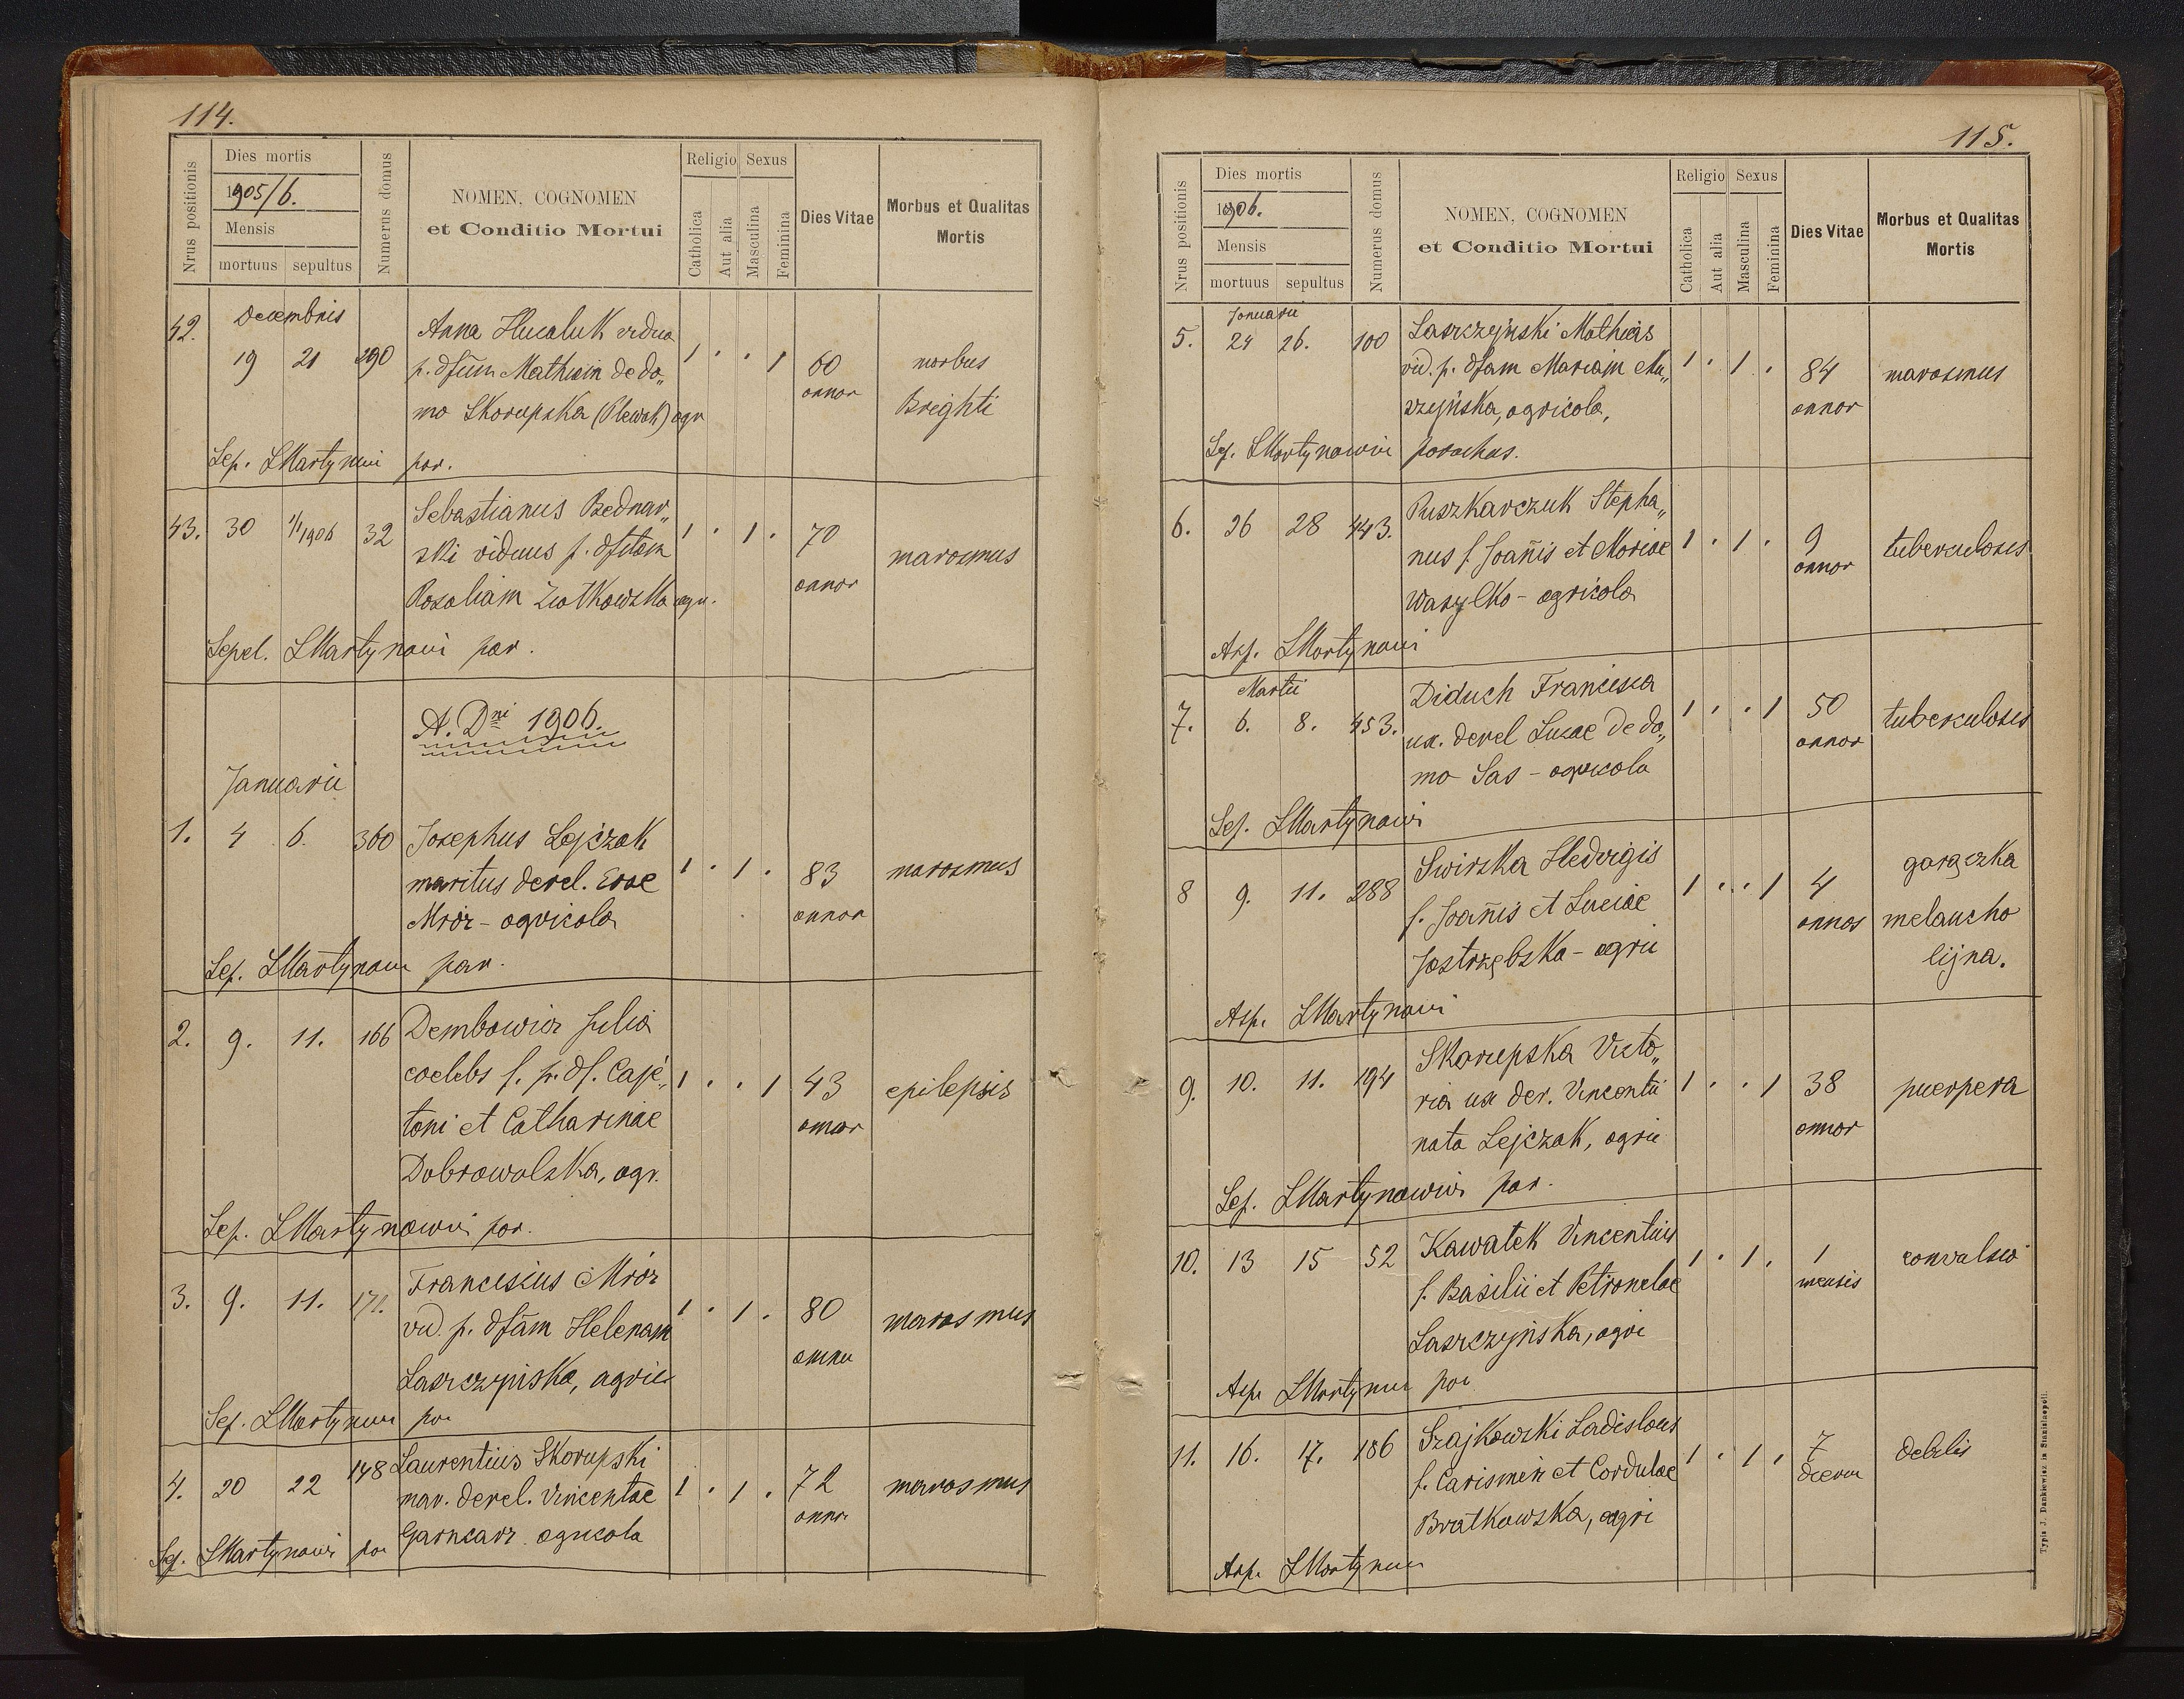 114.
Nrus positionis
Dies mortis
1905/6.
Mensis
mortuus sepultus
Numerus domus
NOMEN, COGNOMEN
et Conditio Mortui
Religio Sexus
Catholica
Aut alia
Masculina
Feminina
Dies Vitae
Morbus et Qualitas
Mortis
Decembris
42. 19 21 290 Anna Hucaluk vidua 1 . . 1 60 morbus
p. dfum Mathiam de do„ annor Breghti
mo Skorupska (Plewak) agr
Sep. LMartynowi par.
43. 30 1/1 1906 32 Sebastianus Bednar„ 1 . 1 . 70 marasmus
ski viduus p. dfctam annor
Rosaliam Ziotkowska agr.
Sepel. LMartynowi par.
A. Dni 1906.
Januarii
1. 4 6. 360 Josephus Lejczak 1 . 1 . 83 marasmus
maritus derel. Evae annor
Mróz - agricola
Sep. LMartynowi par.
2. 9. 11. 166 Dembowicz Julia 1 . . 1 43 epilepsis
coelebs f. p. df. Caje„ annor
toni et Catharinae
Dobrowolska, agr.
Sep. LMartynowicz par.
3. 9. 11. 170. Franciscus Mróz 1 . 1 . 80 marasmus
vid. p. dfam Helenam
Laszczyńska, agric
Sep. LMartynowi par
4. 20 22 148 Laurentius Skorupski 1 . 1 . 72 marasmus
mar. derel. Vincentae annor
Garncarz agricola
Sep. LMartynowi par
115.
Nrus positionis
Dies mortis
1906.
Mensis
mortuus sepultus
Numerus domus
NOMEN, COGNOMEN
et Conditio Mortui
Religio Sexus
Catholica
Aut alia
Masculina
Feminina
Dies Vitae
Morbus et Qualitas
Mortis
Januarii
5. 24 26. 100 Laszczyński Mathias 1 . 1 . 84 marasmus
vid. p. dfam Mariam annor
szyńska, agricola,
Sep. LMartynowicz parochus.
6. 26 28 443. Puszkarczuk Stepha„ 1 . 1 . 9 tuberculosis
nus f. Joañis et Mariae annor
Wasylko - agricola
Asp. LMartynowi
Martii
7. 6. 8. 453. Diduch Francisca 1 . . 1 50 tuberculosis
ux. derel Lucae de do„ annor
mo Sas - agricola
Sep. LMartynowi
8 9. 11. 288 Swirska Hedvigis 1 . . 1 4 gorączka
f. Joañis et Luciae annos melancho
Jastrzębska - agric lijna.
Asp. LMartynowi
9. 10. 11. 194 Skorupska Victo„ 1 . . 1 38 puerpera
ria ux der. Vincentii annor
nata Lejczak, agric
Sep. LMartynowicz par.
10. 13 15 52 Kawatek Vincentius 1 . 1 . 1 convulsio
f. Basilii et Petronelae mensis
Laszczyńska, agri
Asp. LMartynowi par
11. 16. 17. 186 Szajkowski Ladislaus 1 . 1 . 7 debilis
f. Carismiri et Cordulae dierum
Bratkowska, agri
Asp. LMartynowi
Typis J. Dankiewicz in Stanislaopoli.